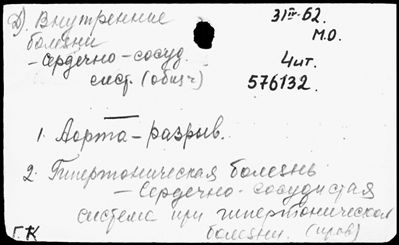 Д). Внутренние
болезни
- Сердечно - сосуд.
сист. (общ ч)
31 III-62.
М.О.
4 шт.
576132.
1. Аорта - разрыв.
2. Гипертоническая болезнь
- Сердечно - сосудистая
система при гипертонической
болезни.
ГК